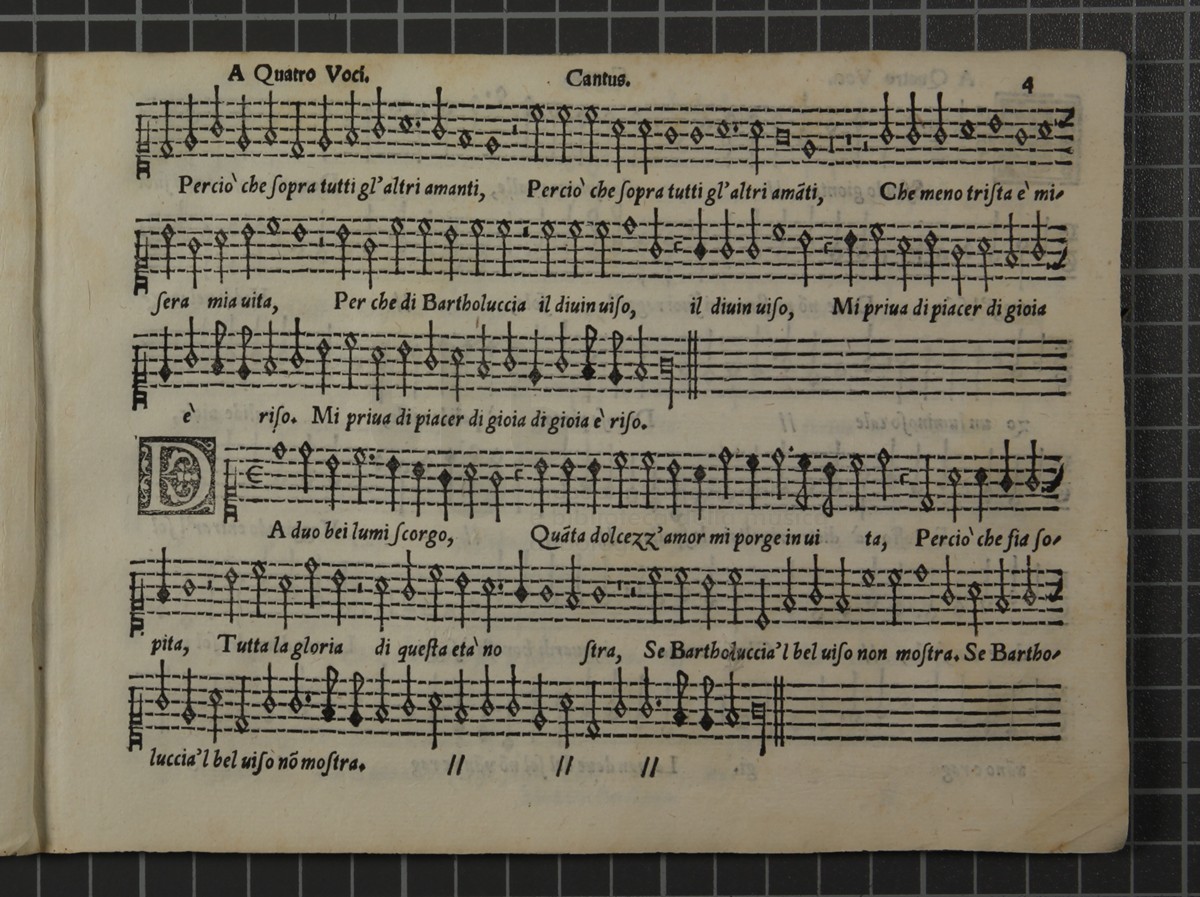 A Quatro Voci. Cantus. 4
Percio` che ſopra tutti gl'altri amanti, Percio` che ſopra tutti gl'altri amāti, Che meno triſta e` mi-
ſera mia uita, Per che di Bartholuccia il diuin uiſo, il diuin uiſo, Mi priua di piacer di gioia
e` riſo. Mi priua di piacer di gioia di gioia e` riſo.
D
A duo bei lumi ſcorgo, Quāta dolcezz'amor mi porge in ui ta, Percio` che fia ſo-
pita, Tutta la gloria di queſta eta` no ſtra, Se Bartholuccia'l bel uiſo non moſtra. Se Bartho-
luccia'l bel uiſo nō moſtra. // // //